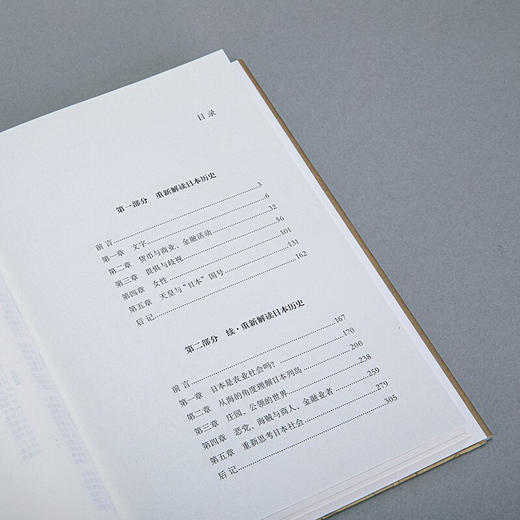 目录
第一部分 重新解读日本历史
前言 3
第一章 文字 6
第二章 货币与商业、金融活动 32
第三章 畏惧与歧视 56
第四章 女性 101
第五章 天皇与“日本”国号 131
后记 162
第二部分 续·重新解读日本历史
前言 167
第一章 日本是农业社会吗？ 170
第二章 从海的角度理解日本列岛 200
第三章 庄园、公领的世界 238
第四章 恶党、海贼与商人、金融业者 259
第五章 重新思考日本社会 279
后记 305